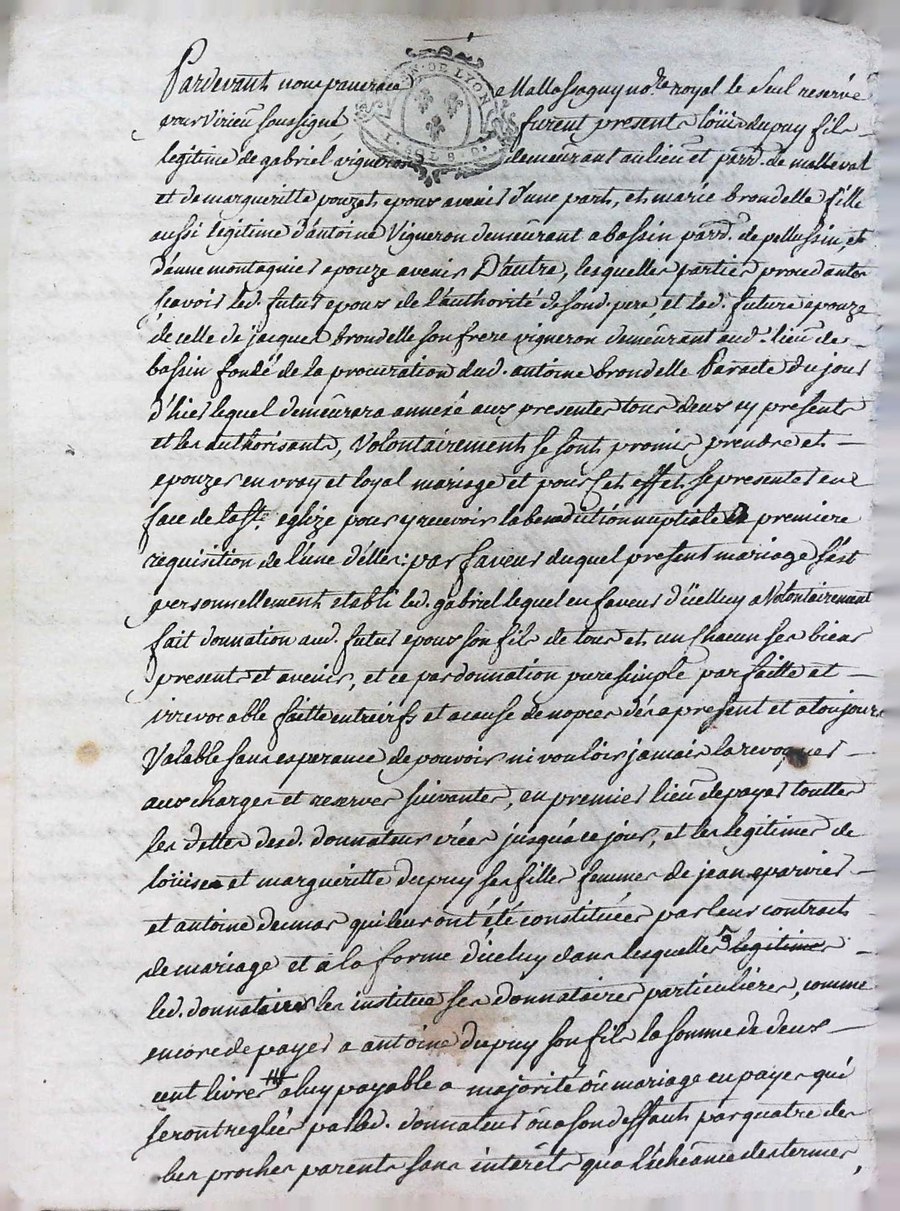 Pardevant nous paverane Mallassaguy no.re royal le seul reservé
pour virieu soussigné furent presents loüis dupuy fils
GEN. DE LYON
legitime de gabriel vigneron demeurant au lieu et parr.e de malleval
et de margueritte pouzet epoux avenir d'une part, et marie brondelle fille
aussi legitime d'antoine Vigneron demeurant a bassin parr.e de pellussin et
d'anne montagnier epouze avenir D'autre, lesquelles parties procedantes
scavoir led. futur epoux de l'authorité de son d. pere, et lad. future epouze
de celle de jacques brondelle son frere vigneron demeurant aud. lieu de
bassin fondé de la procuration dud. antoine brondelle Par acte du jour
d'hier lequel demeurera annexé aux presentes tous deux icy presents
et les authorisants, Volontairement se sont promis prendre et
epouzer en vray et loyal mariage et pour cet effet se presenter en
face de la s.te eglize pour y recevoir la benediction nuptiale a premiere
requisition de l'une d'elles: par faveur duquel present mariage s'est
personnellement etabli led. gabriel lequel en faveur d'icelluy a Volontairement
fait donnation aud. futur epoux son fils de tous et un chacun ses biens
present et avenir, et ce par donnation pure simple parfaitte et
irrevocable faitte entre vifs et a cause de nopces dés a present et a toujours
Valable sans esperance de pouvoir ni vouloir jamais la revoquer
aux charges et reserves suivantes, en premier lieu de payer touttes
les dettes dud. donnateur crées jusqu'a ce jour, et les legitimes de
loüise et margueritte dupuy ses filles femmes de jean eparvier
et antoine deumas qui leur ont été constituées par leur contract
de mariage et a la forme d'icelluy dans lesquelles legitimes
led. donnataires les institue ses donnataires particulieres, comme
encore de payer a antoine dupuy son fils la somme de deux
cent livres a luy payable a majorité ou mariage en payes qui
seront reglées par led. donnateur ou a son deffaut par quatre de
ses proches parents sans interêts qu'a l'echeance des termes,